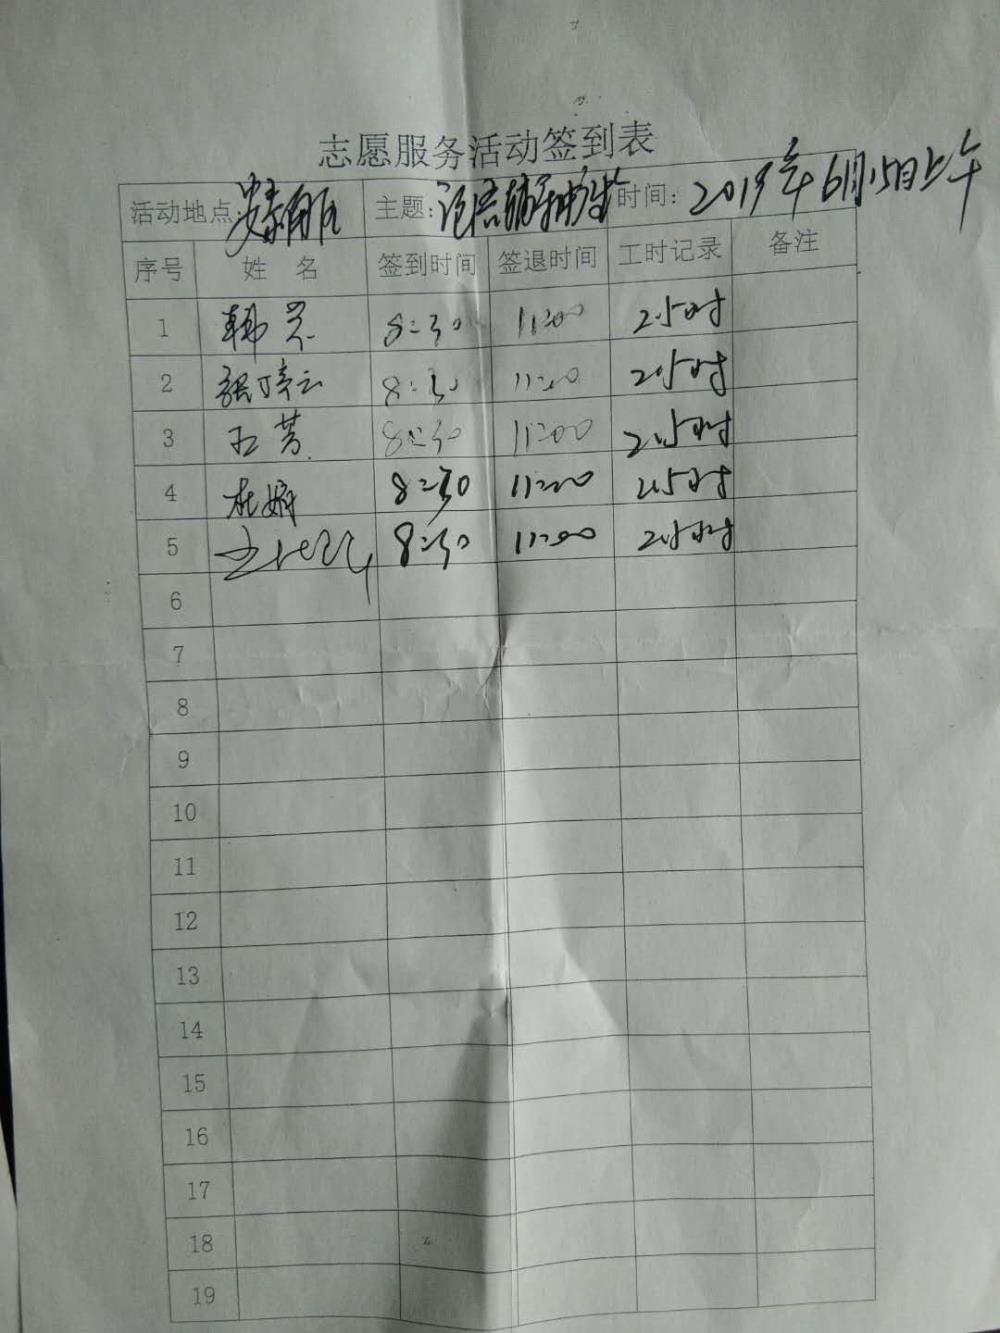 志愿服务活动签到表
活动地点: 主题: 时间: 2019年6月15日上午
序号 姓 名 签到时间 签退时间 工时记录 备注
1 韩 8:30 11:00 2.5时
2 张 8:30 11:00 2.5时
3 芳 8:30 11:00 2.5时
4 杜娟 8:30 11:00 2.5时
5 8:30 11:00 2.5时
6
7
8
9
10
11
12
13
14
15
16
17
18
19